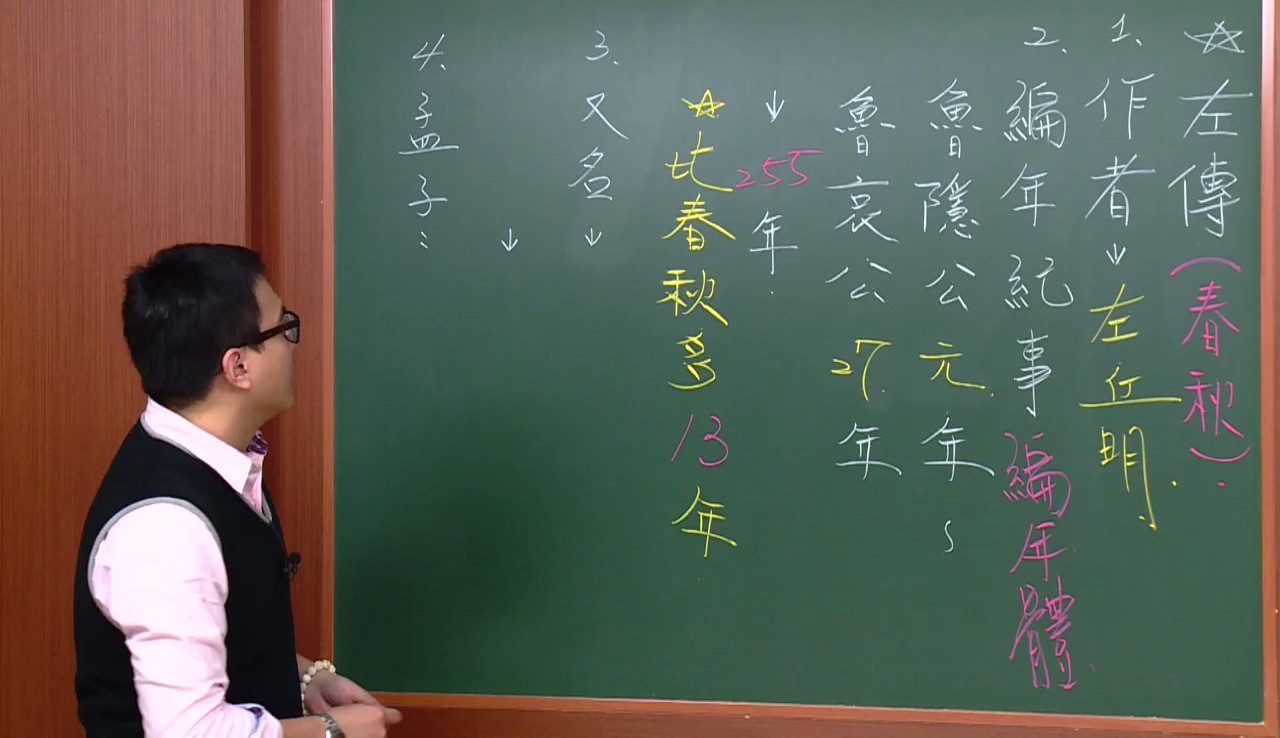 ☆左傳(春秋)
1、作者→左丘明
2、編年紀事編年體
魯隱公元年~
魯哀公27年
→255年
☆比春秋多13年
3、又名→
→
4、孟子: